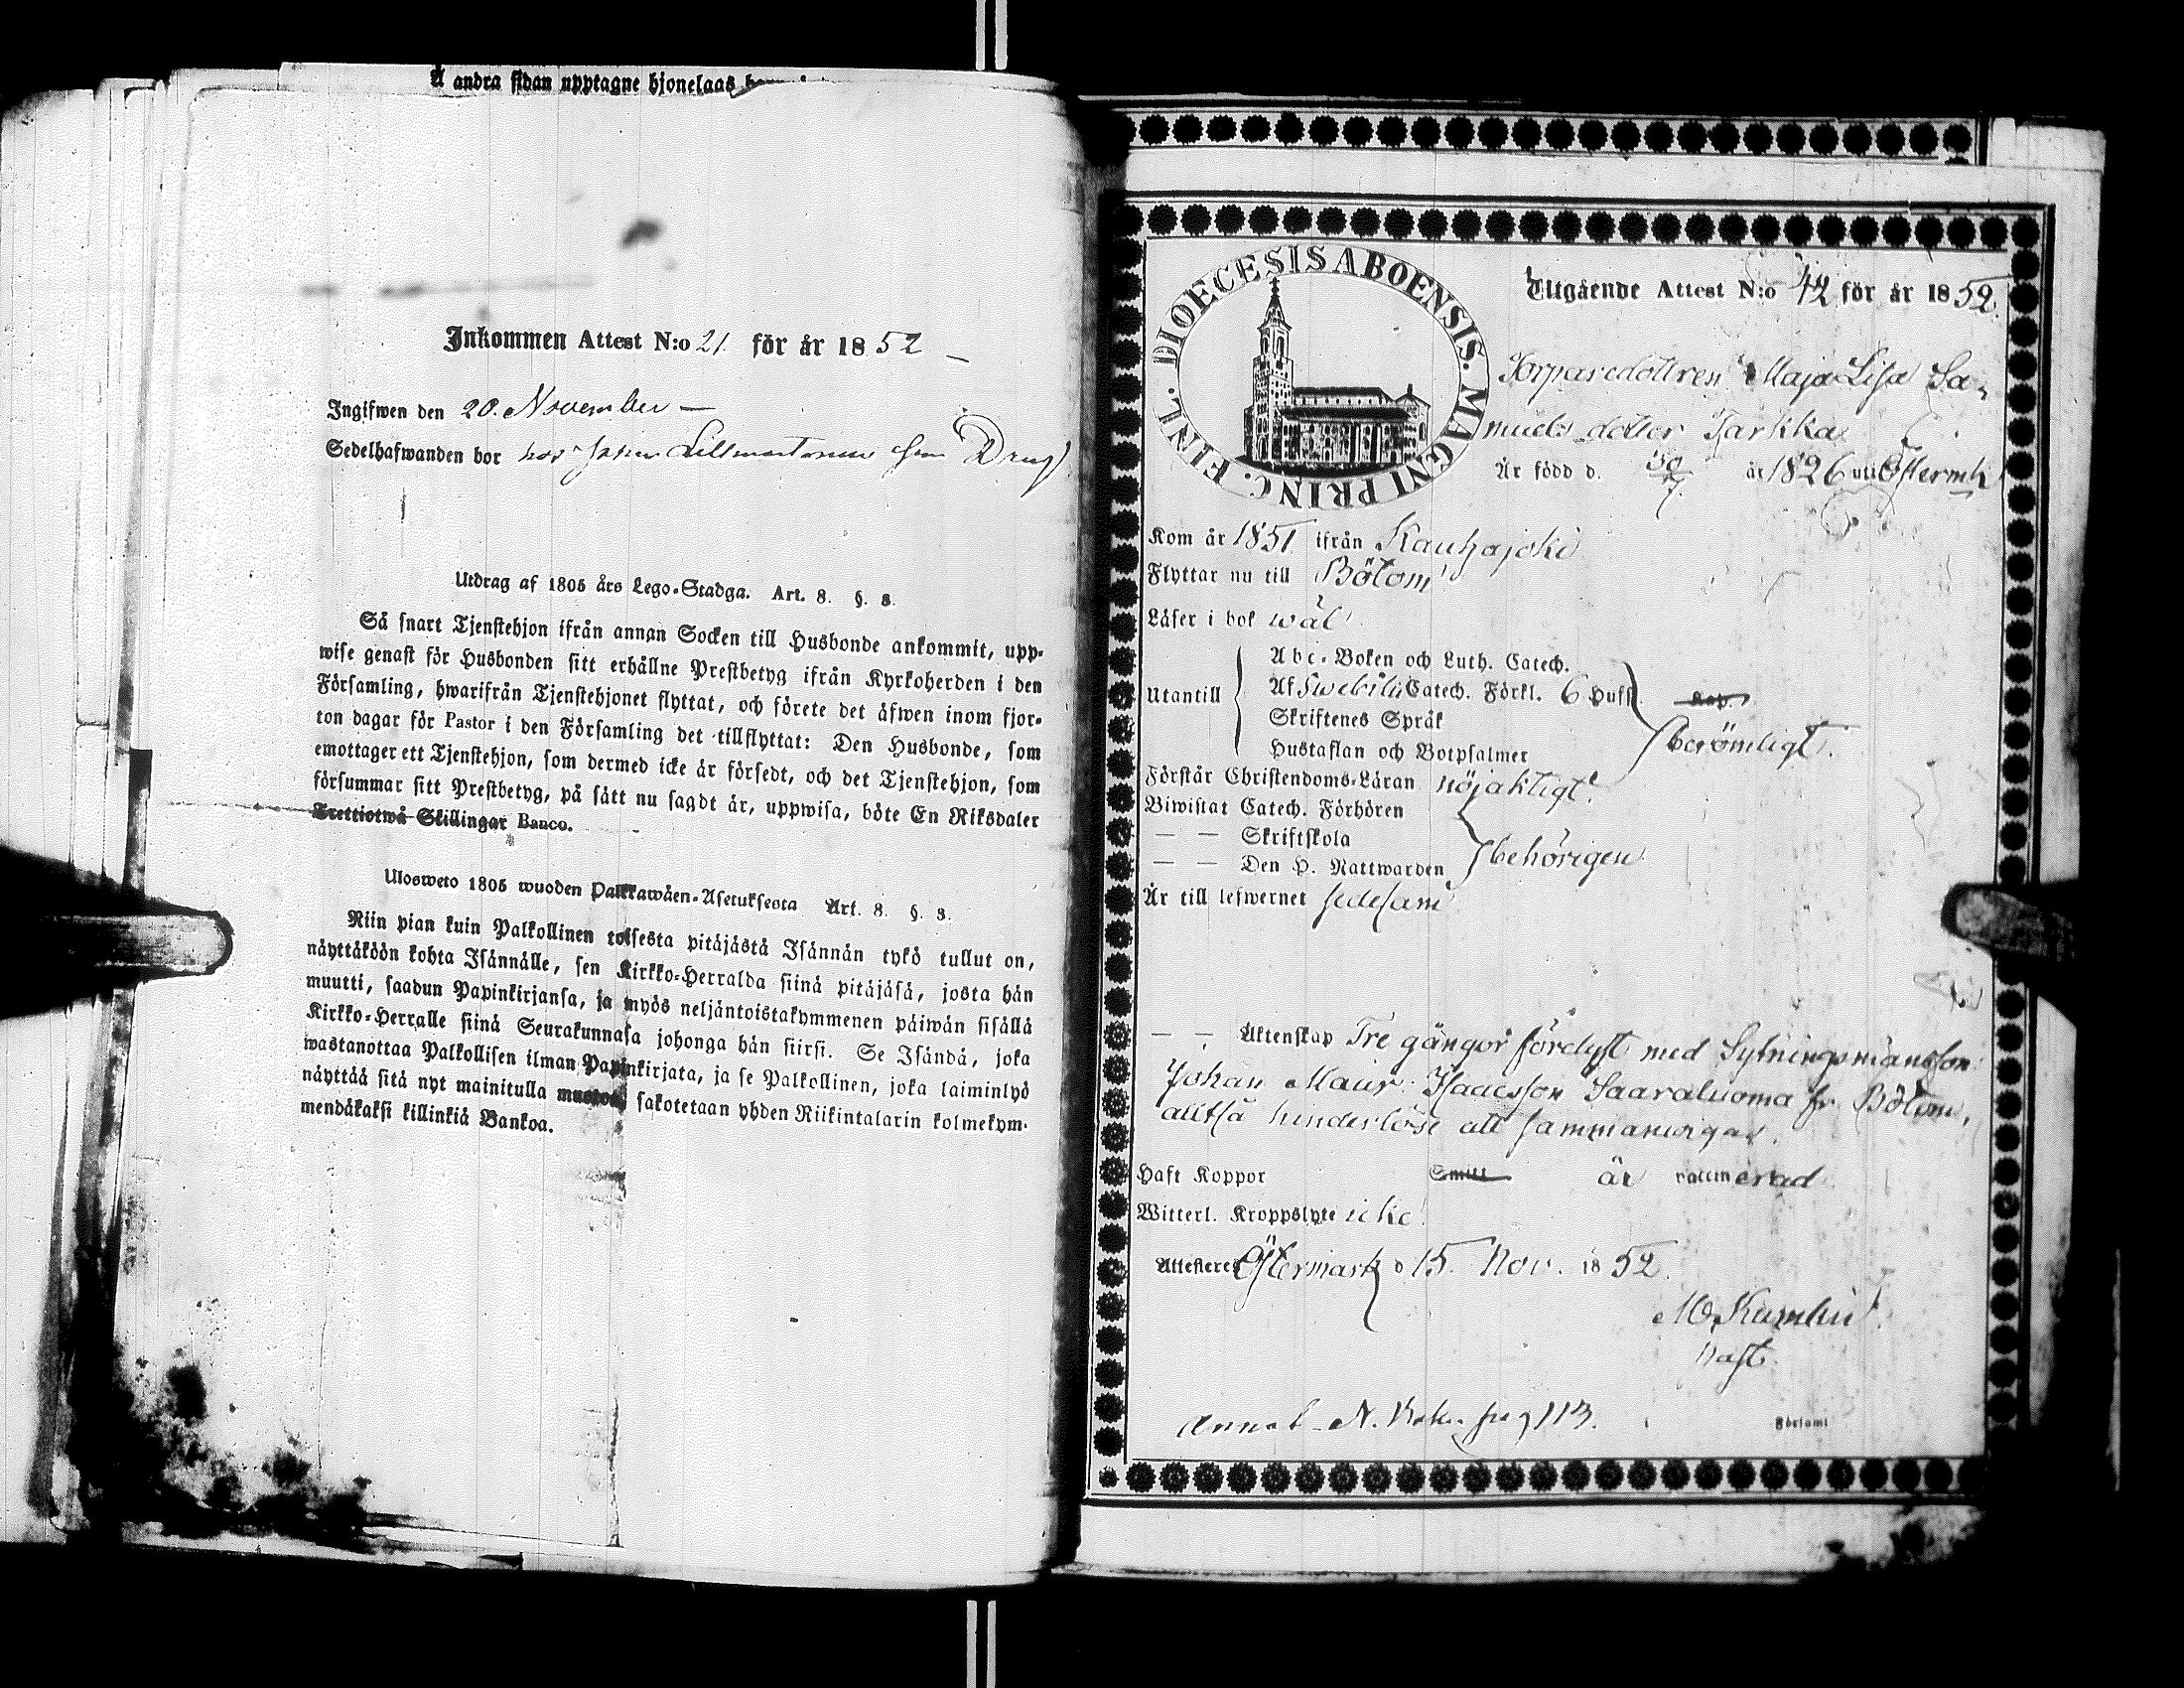 Å andra sidan upptagne hjonelaas
Inkommen Attest N:o 21. för år 1852
Ingifwen den 20. November —
Sedelhafwanden bor hos Johan som Dreng
Utdrag af 1805 års Lego-Stadga. Art. 8. §. 3.
Så snart Tjenstehjon ifrån annan Socken till Husbonde ankommit, upp-
wise genast för Husbonden sitt erhållne Prestbetyg ifrån Kyrkoherden i den
Församling, hwarifrån Tjenstehjonet flyttat, och förete det äfwen inom fjor-
ton dagar för Pastor i den Församling det tillflyttat: Den Husbonde, som
emottager ett Tjenstehjon, som dermed icke är försedt, och det Tjenstehjon, som
försummar sitt Prestbetyg, på sätt nu sagdt är, uppwisa, böte En Riksdaler
Trettiotwå Skillingar Banco.
Ulosweto 1805 wuoden Palkkawäen-Asetuksesta Art. 8. §. 3.
Niin pian kuin Palkollinen toisesta pitäjästä Isännän tykö tullut on,
näyttäköön kohta Isännälle, sen Kirkko-Herralda siinä pitäjäsä, josta hän
muutti, saadun Papinkirjansa, ja myös neljäntoistakymmenen päiwän sisällä
Kirkko-Herralle siinä Seurakunnasa johonga hän siirsi. Se Isändä, joka
wastanottaa Palkollisen ilman Papinkirjata, ja se Palkollinen, joka laiminlyö
näyttää sitä nyt mainitulla muotoa, sakotetaan yhden Riikintalarin kolmekym-
mendäkaksi killinkiä Bankoa.
DIOECESIS ABOENSIS. MAGNI PRINC. FINL.
Utgående Attest N:o 42 för år 1852.
Torparedottren Maja Lisa Sa-
muels dotter Tarkka
Är född d. 30/7 år 1826 uti Östermk
Kom år 1851 ifrån Kauhajoki
Flyttar nu till Bötom
Läser i bok wäl
Utantill
Abc-Boken och Luth. Catech.
Af Swebilii Catech. Förkl. 6 Hufst. Kap.
Skriftenes Språk
Hustaflan och Botpsalmer
berömligt.
Förstår Christendoms-Läran nöjaktigt.
Biwistat Catech. Förhören
— — Skriftskola
— — Den H. Nattwarden
behörigen
Är till lefwernet sedesam
— — Äktenskap Tre gångor förelyst med Sytningsmansson
Johan Maur. Isaacsson Saaraluoma fr. Bötom,
alltså hinderlöse att sammanwigas.
Haft Koppor Smitt är vaccinerad
Witterl. Kroppslyte icke
Attesteres Östermark d 15. Nov. 1852.
Past.
pag 113.
Församl